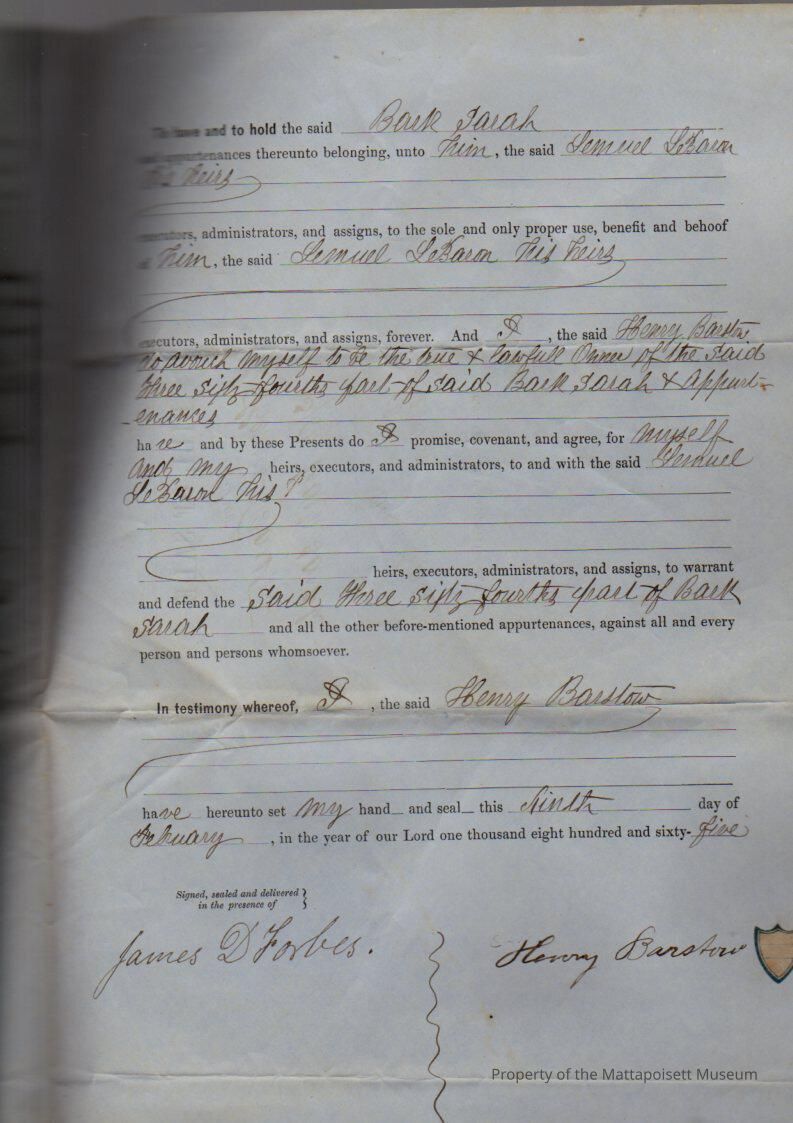 To have and to hold the said Bark Sarah
and appurtenances thereunto belonging, unto him, the said Lemuel LeBaron
his heirs
executors, administrators, and assigns, to the sole and only proper use, benefit and behoof
of him, the said Lemuel LeBaron his heirs
executors, administrators, and assigns, forever. And I, the said Henry Barstow
do avouch myself to be the true & lawfull Owner of the said
three sixty-fourths part of said Bark Sarah & Appurt-
-enances
have and by these Presents do I promise, covenant, and agree, for myself
and my heirs, executors, and administrators, to and with the said Lemuel
LeBaron his
heirs, executors, administrators, and assigns, to warrant
and defend the said three sixty fourths part of Bark
Sarah and all the other before-mentioned appurtenances, against all and every
person and persons whomsoever.
In testimony whereof, I, the said Henry Barstow
have hereunto set my hand and seal this Ninth day of
February, in the year of our Lord one thousand eight hundred and sixty-five
Signed, sealed and delivered }
in the presence of
James D Forbes.
Henry Barstow
Property of the Mattapoisett Museum